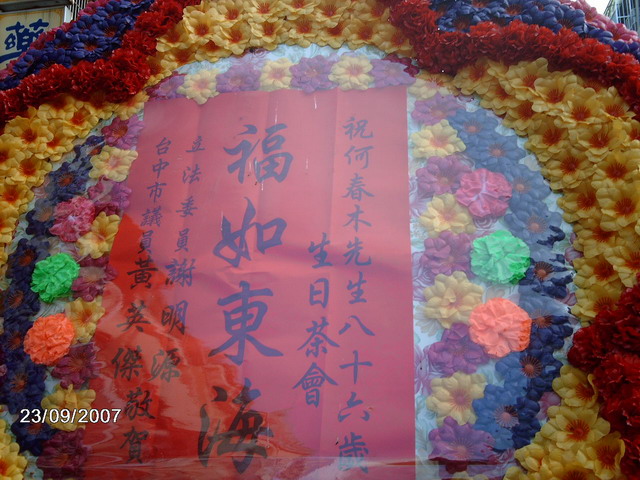 藥
祝何春木先生八十六歲
生日茶會
福如東海
立法委員謝明源
台中市議員黃英傑敬賀
23/09/2007